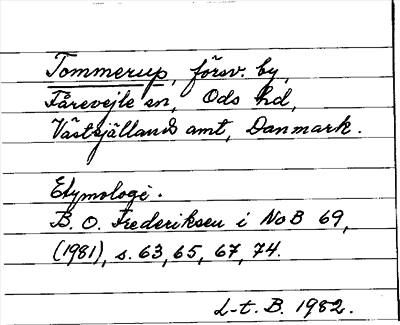 Tommerup, försv. by,
Fårevejle sn, Ods hd,
Västsjällands amt, Danmark.
Etymologi.
B. O. Frederiksen i NoB 69,
(1981), s. 63, 65, 67, 74.
L-t. B. 1982.